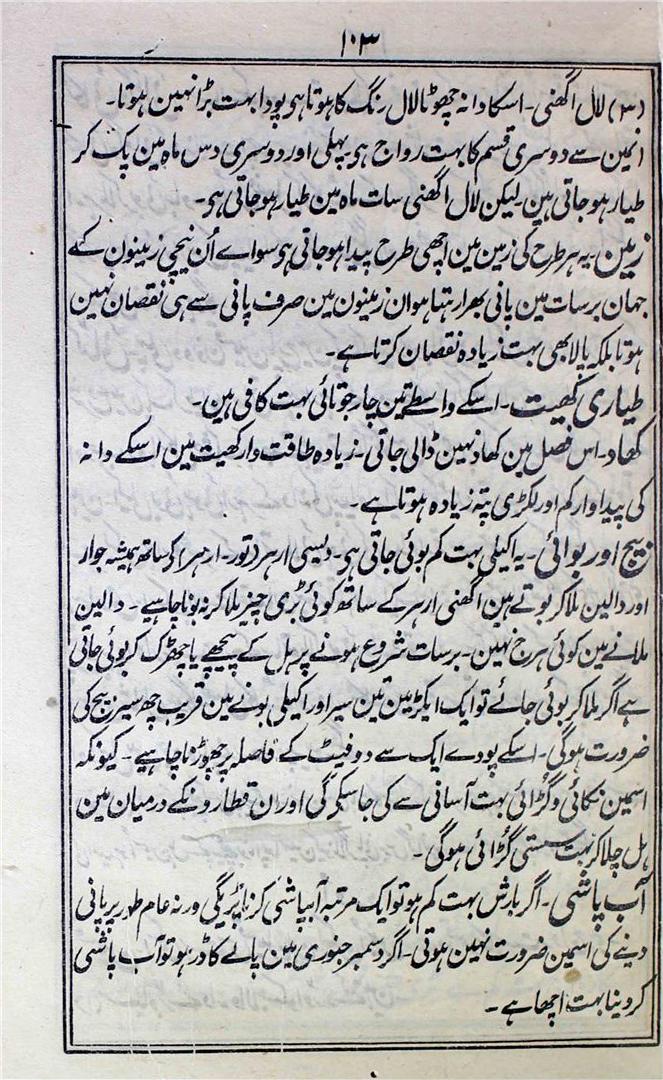 ۱۰۳
(۳) لال اگھنی۔ اسکا دانہ چھوٹا لال رنگ کا ہوتا ہی پودا بہت بڑا نہین ہوتا۔
انمین سے دوسری قسم کا بہت رواج ہی پہلی اور دوسری دس ماہ مین پک کر
طیار ہو جاتی ہین۔ لیکن لال اگھنی سات ماہ مین طیار ہو جاتی ہی۔
زمین۔ یہ ہر طرح کی زمین مین اچھی طرح پیدا ہو جاتی ہی سواے اُن نیچی زمینون کے
جہان برسات مین پانی بھرا رہتا ہو ان زمینون مین صرف پانی سے ہی نقصان نہین
ہوتا بلکہ پالا بھی بہت زیادہ نقصان کرتا ہے۔
طیاری کھیت۔ اسکے واسطے تین چار جوتائی بہت کافی ہین۔
کھاد۔ اس فصل مین کھاد نہین ڈالی جاتی۔ زیادہ طاقت ور کھیت مین اسکے دانہ
کی پیداوار کم اور لکڑی پتہ زیادہ ہوتا ہے۔
بیج اور بوائی۔ یہ اکیلی بہت کم بوئی جاتی ہی۔ دیسی ارہر (تور۔ ارہر) کے ساتھ ہمیشہ جوار
اور دالین ملا کر بوتے ہین اگھنی ارہر کے ساتھ کوئی بڑی چیز ملا کر نہ بونا چاہیے۔ دالین
ملانے مین کوئی ہرج نہین۔ برسات شروع ہونے پر ہل کے پیچھے یا چھڑک کر بوئی جاتی
ہے اگر ملا کر بوئی جائے تو ایک ایکڑ مین تین سیر اور اکیلی بونے مین قریب چھ سیر بیج کی
ضرورت ہوگی۔ اسکے پودے ایک سے دو فیٹ کے فاصلہ پر چھوڑنا چاہیے۔ کیونکہ
اسمین نکائی و گڑائی بہت آسانی سے کی جا سکے گی اور ان قطارونکے درمیان مین
ہل چلا کر بہت سستی گڑائی ہوگی۔
آب پاشی۔ اگر بارش بہت کم ہو تو ایک مرتبہ آبپاشی کرنا پڑیگی ورنہ عام طور پر پانی
دینے کی اسمین ضرورت نہین ہوتی۔ اگر دسمبر جنوری مین پالے کا ڈر ہو تو آب پاشی
کر دینا بہت اچھا ہے۔